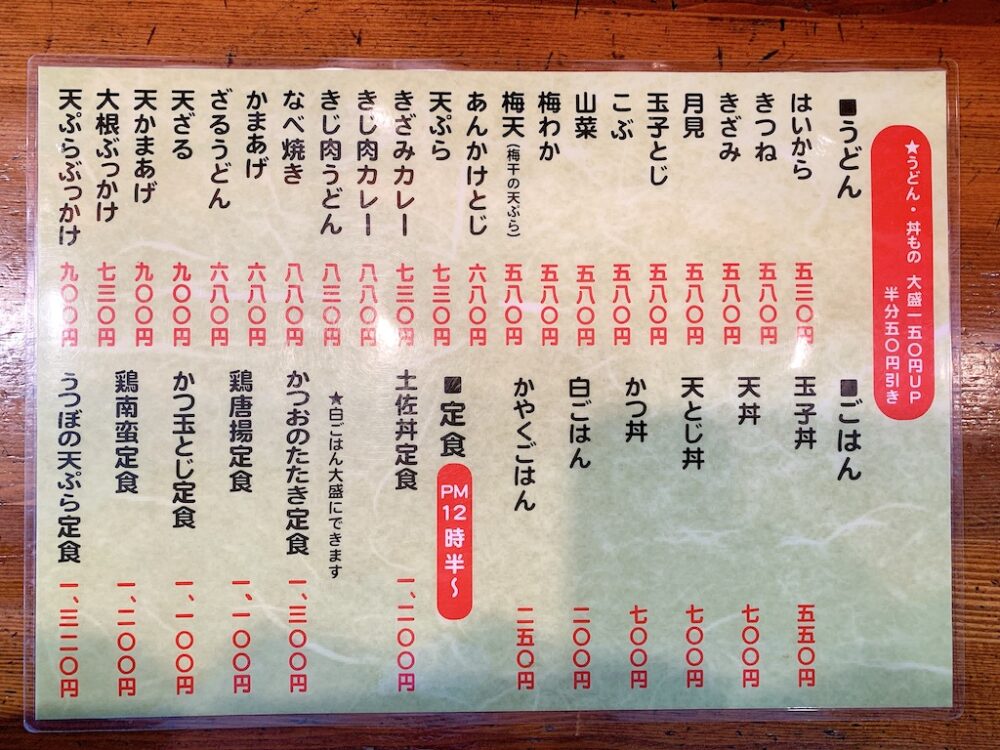 ★うどん・丼もの 大盛一五〇円UP
半分五〇円引き
■うどん
はいから 五三〇円
きつね 五八〇円
きざみ 五八〇円
月見 五八〇円
玉子とじ 五八〇円
こぶ 五八〇円
山菜 五八〇円
梅わか 五八〇円
梅天(梅干の天ぷら) 五八〇円
あんかけとじ 六八〇円
天ぷら 七三〇円
きざみカレー 七三〇円
きじ肉カレー 八八〇円
きじ肉うどん 八三〇円
なべ焼き 八八〇円
かまあげ 六八〇円
ざるうどん 六八〇円
天ざる 九〇〇円
天かまあげ 九〇〇円
大根ぶっかけ 七三〇円
天ぷらぶっかけ 九〇〇円
■ごはん
玉子丼 五五〇円
天丼 七〇〇円
天とじ丼 七〇〇円
かつ丼 七〇〇円
白ごはん 二〇〇円
かやくごはん 二五〇円
■定食 PM12時半〜
土佐丼定食 一、二〇〇円
★白ごはん大盛にできます
かつおのたたき定食 一、三〇〇円
鶏唐揚定食 一、一〇〇円
かつ玉とじ定食 一、一〇〇円
鶏南蛮定食 一、二〇〇円
うつぼの天ぷら定食 一、三二〇円